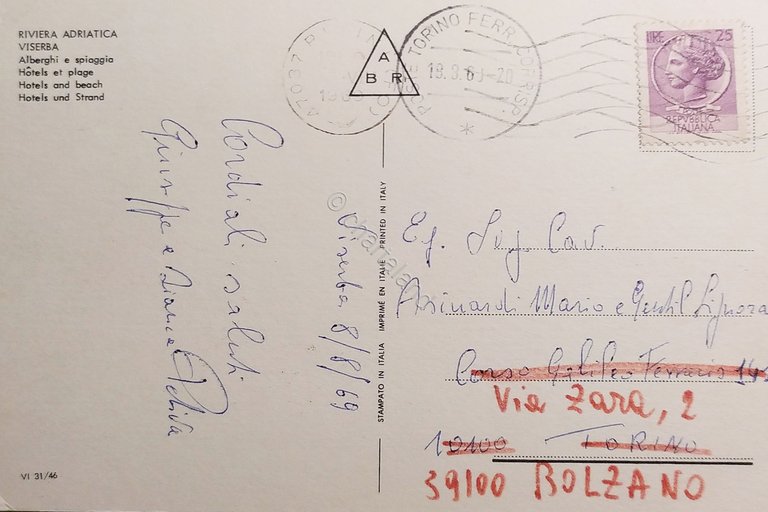 RIVIERA ADRIATICA
VISERBA
Alberghi e spiaggia
Hôtels et plage
Hotels and beach
Hotels und Strand
A
B R
TORINO FERR. CORRISP.
LIRE 25
REPVBBLICA
ITALIANA
Viserba 8/8/69
Cordiali saluti
Giuseppe e
STAMPATO IN ITALIA IMPRIMÉ EN ITALIE PRINTED IN ITALY
Eg. Sig. Cav.
Mario e Gentil Signora
Corso Galileo Ferraris
Via Zara, 2
10100 TORINO
39100 BOLZANO
VI 31/46